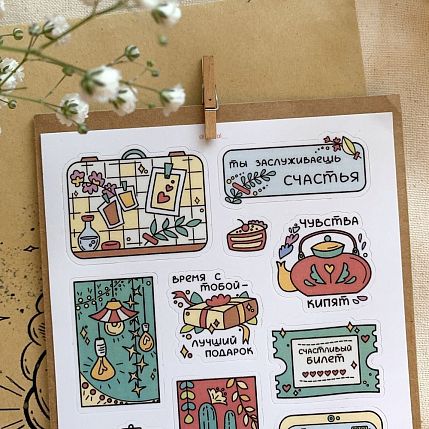 ты заслуживаешь
счастья
чувства
кипят
время с
тобой–
лучший
подарок
счастливый
билет